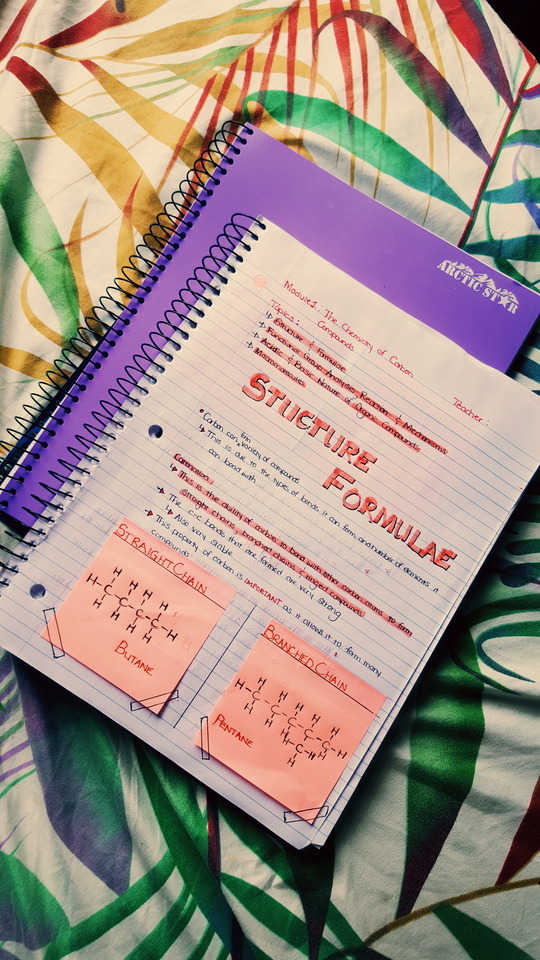 ARCTIC STAR
Module 1: The Chemistry of Carbon Compounds
Teacher:
Topics:
↳ Structure & Formulae
↳ Functional Group Analysis, Reaction & Mechanisms
↳ Acidic & Basic Nature of Organic Compounds
↳ Macromolecules
STUCTURE
FORMULAE
• Carbon can form variety of compounds
↳ This is due to the type of bonds it can form and number of elements it
can bond with
Catenation:
↳ This is the ability of carbon to bond with other carbon atoms to form
straight chains, branched chains & ringed compounds
↳ The C-C bonds that are formed are very strong
↳ Also very stable
↳ This property of carbon is IMPORTANT as it allows it to form many
compounds
STRAIGHT CHAIN
H H H H
H-C-C-C-C-H
H H H H
BUTANE
BRANCHED CHAIN
H H H H H
H-C-C-C-C-C-H
H H H
H-C-H
H
PENTANE